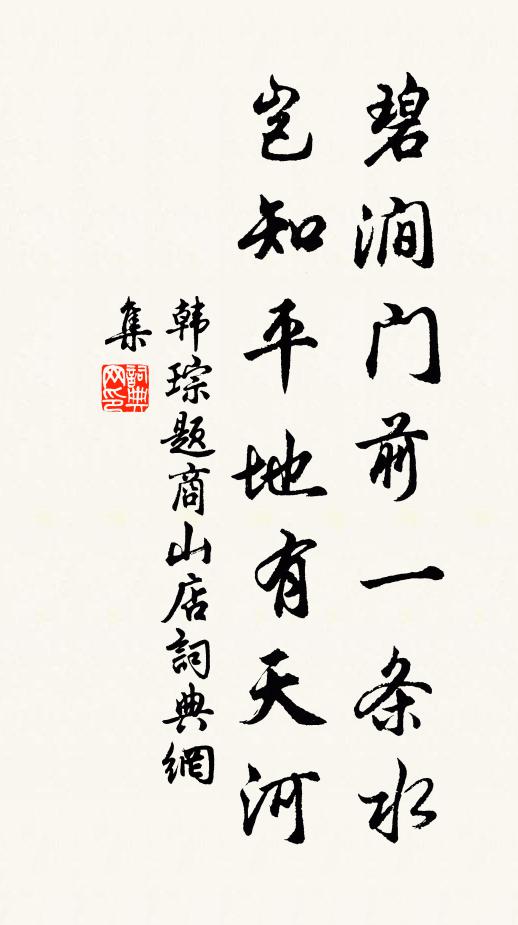 碧涧门前一条水
岂知平地有天河
韩琮题商山店詞典網
集
詞典网印